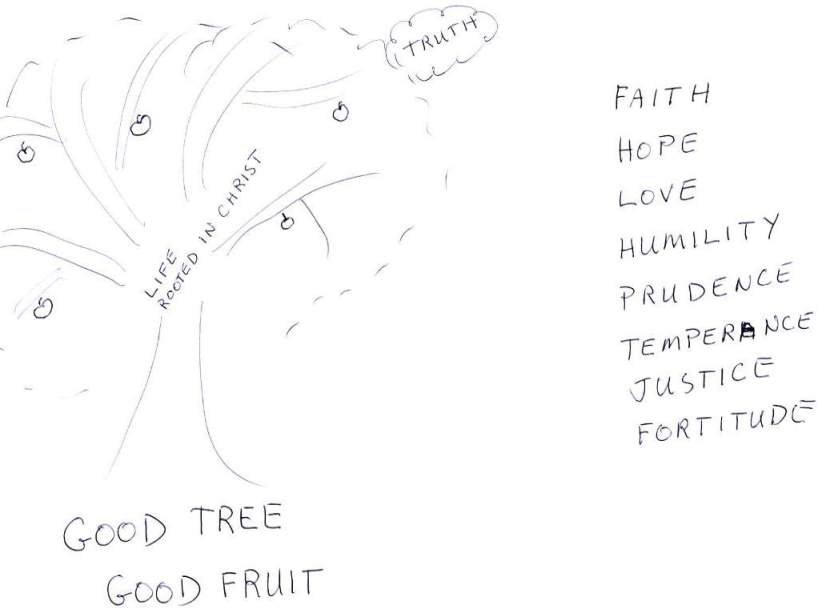 TRUTH
LIFE
ROOTED IN CHRIST
GOOD TREE
GOOD FRUIT
FAITH
HOPE
LOVE
HUMILITY
PRUDENCE
TEMPERANCE
JUSTICE
FORTITUDE